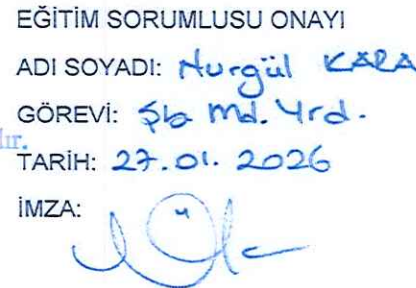 EĞİTİM SORUMLUSU ONAYI
ADI SOYADI: Nurgül KARA
GÖREVİ: Şb Md. Yrd.
TARİH: 27.01.2026
İMZA: